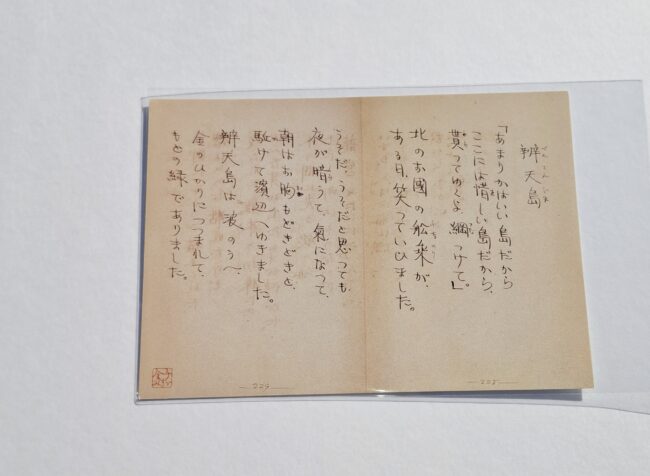 辨天島
べんてんじま
「あまりかはいい島だから
ここには惜しい島だから、
貰ってゆくよ、綱つけて。」
北のお國の船乘が、
ある日、笑っていひました。
うそだ、うそだと思っても、
夜が暗うて、氣になって、
朝はお胸もどきどきと、
駈けて濱辺へゆきました。
辨天島は波のうへ、
金のひかりにつつまれて、
もとの緑でありました。